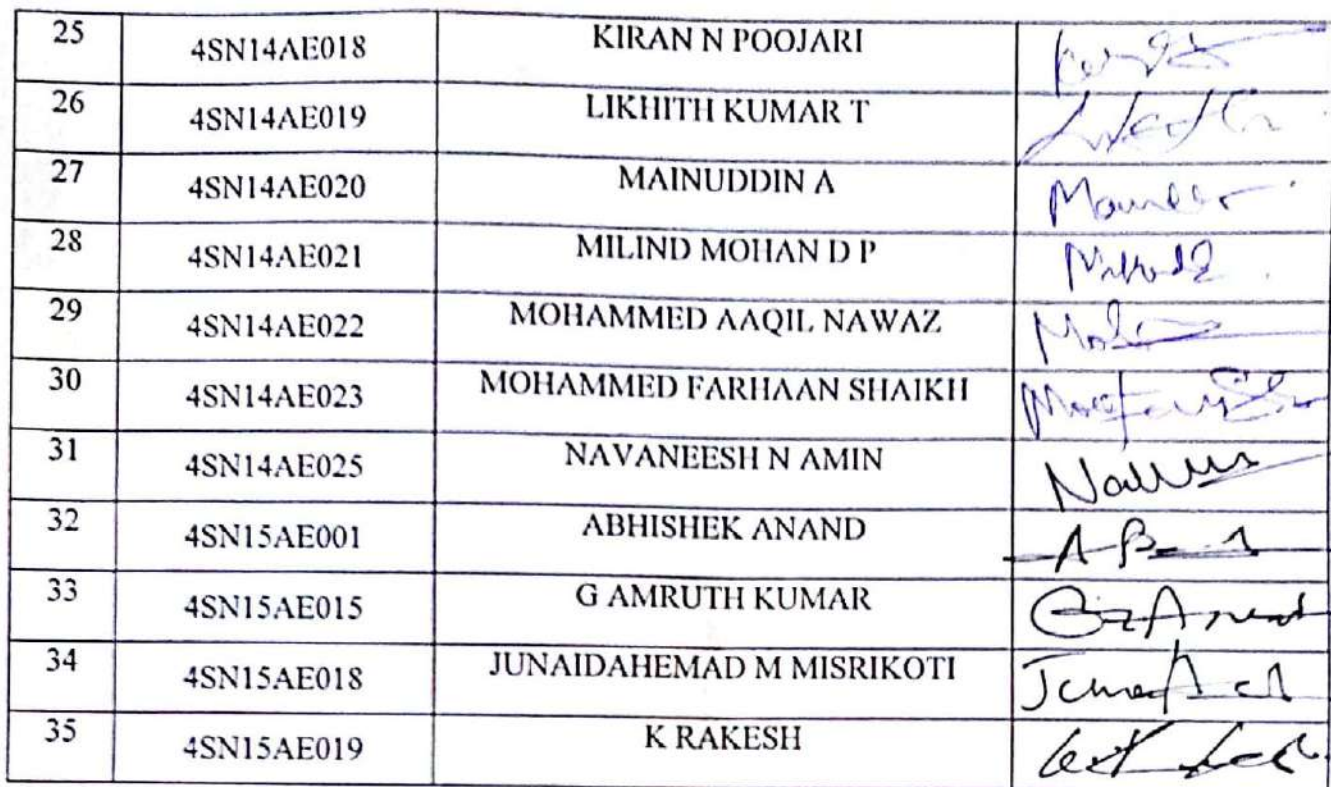 25 4SN14AE018 KIRAN N POOJARI
26 4SN14AE019 LIKHITH KUMAR T
27 4SN14AE020 MAINUDDIN A
28 4SN14AE021 MILIND MOHAN D P
29 4SN14AE022 MOHAMMED AAQIL NAWAZ
30 4SN14AE023 MOHAMMED FARHAAN SHAIKH
31 4SN14AE025 NAVANEESH N AMIN
32 4SN15AE001 ABHISHEK ANAND
33 4SN15AE015 G AMRUTH KUMAR
34 4SN15AE018 JUNAIDAHEMAD M MISRIKOTI
35 4SN15AE019 K RAKESH